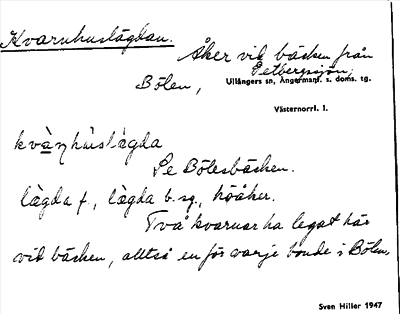 Kvarnhuslägdan.
Åker vid bäcken från
Petbergssjön,
Bölen,
Ullångers sn, Ångermanl. s. doms. tg.
Västernorrl. l.
kvàṇhùslägda
Se Bölesbäcken.
lägda f., lägda b. sg., höåker.
Två kvarnar ha legat här
vid bäcken, alltså en för varje bonde i Bölen.
Sven Hiller 1947